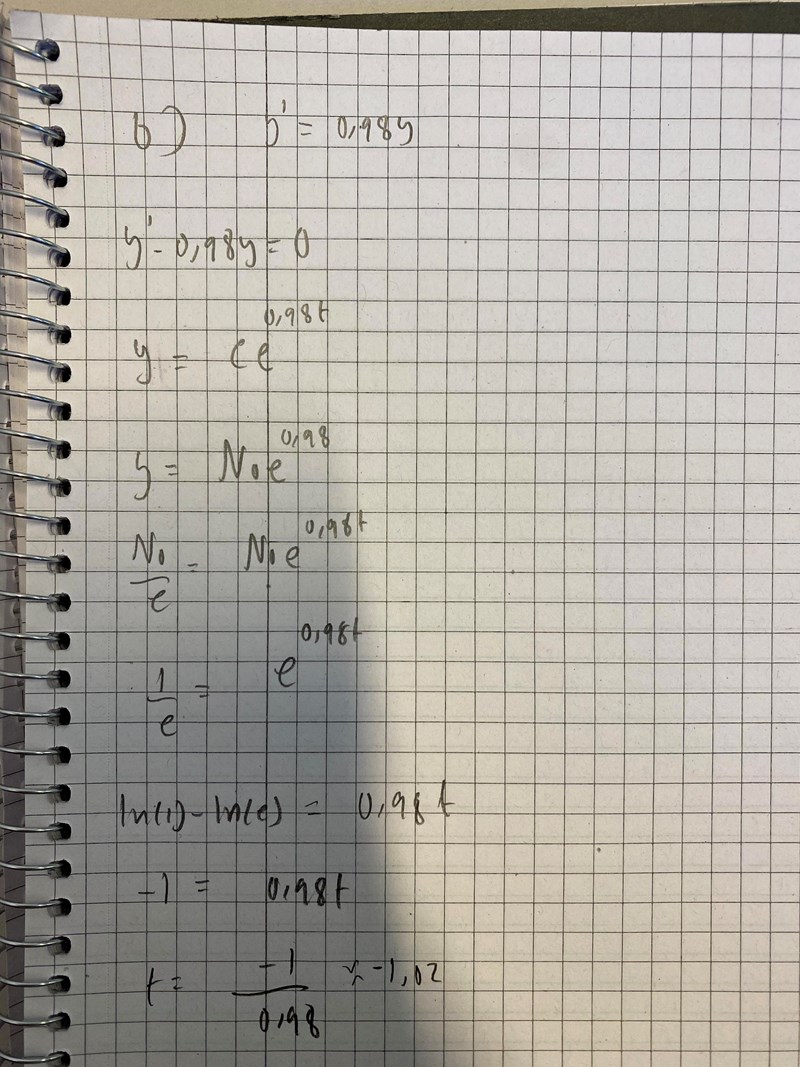 b) y' = 0,98y
y' - 0,98y = 0
y = Ce^{0,98t}
y = N₀e^{0,98}
N₀/e = N₀e^{0,98t}
1/e = e^{0,98t}
ln(1) - ln(e) = 0,98t
-1 = 0,98t
t = -1/0,98 ≈ -1,02